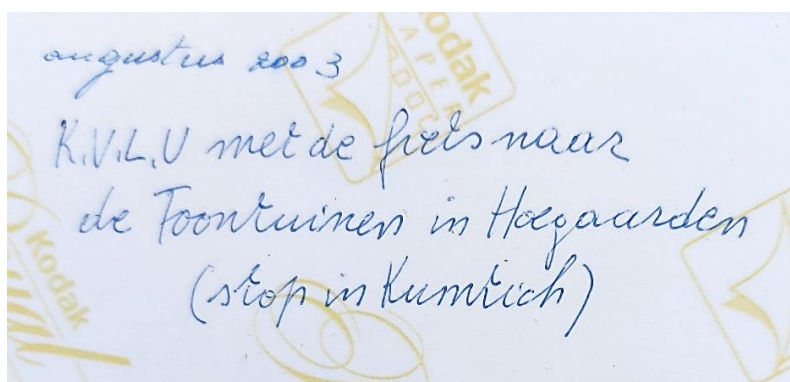 augustus 2003
K.V.L.U met de fiets naar
de Toontuinen in Hoegaarden
(stop in Kumtich)
Kodak
Kodak